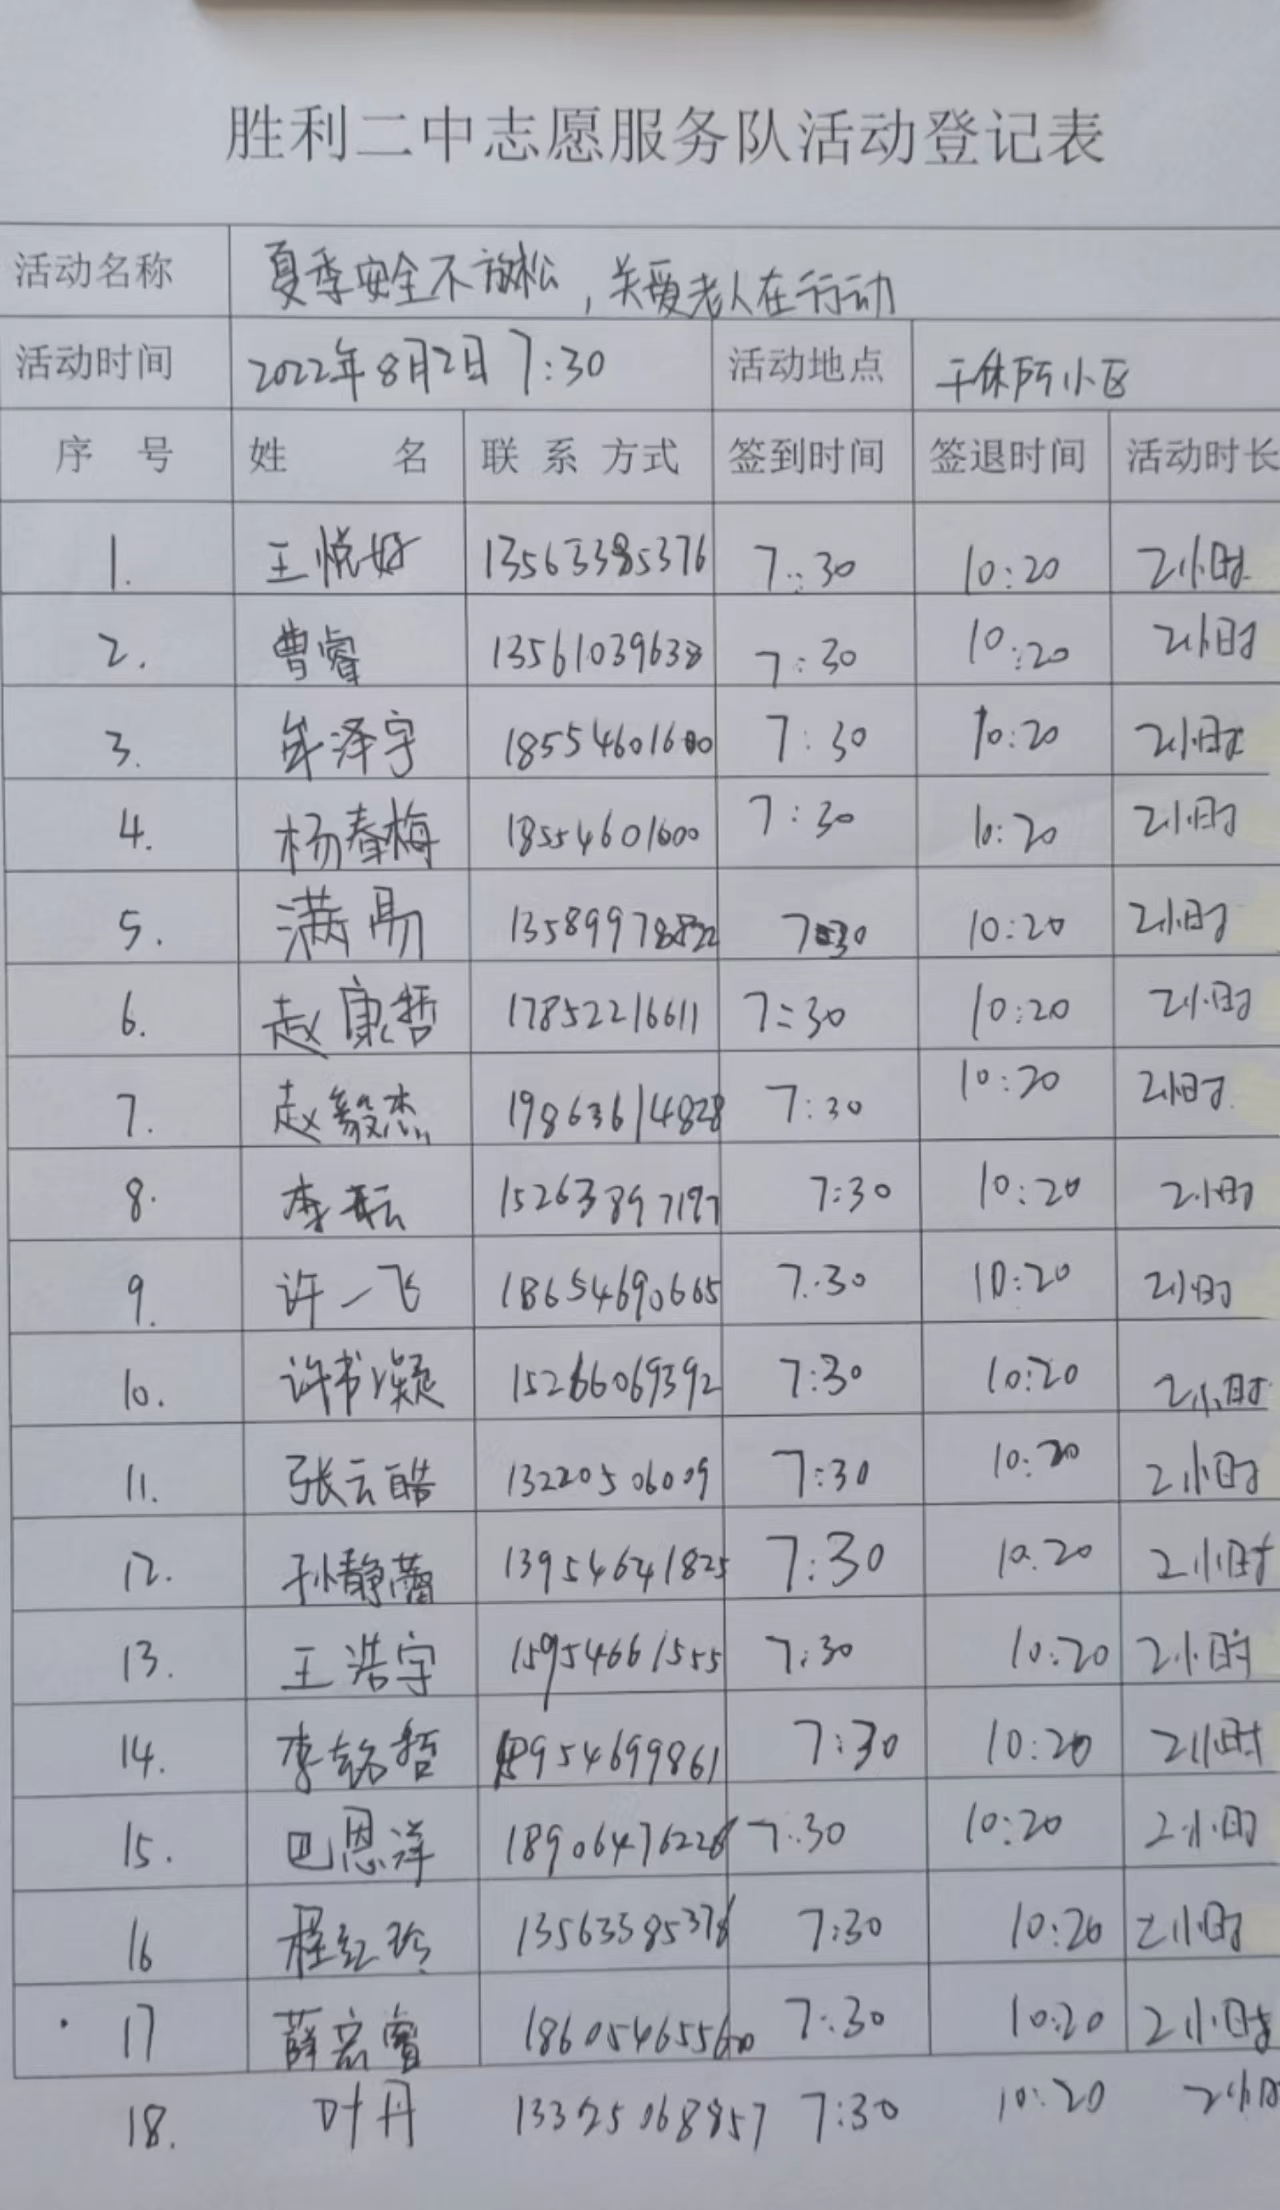 胜利二中志愿服务队活动登记表
活动名称 夏季安全不放松，关爱老人在行动
活动时间 2022年8月2日 7:30 活动地点 干休所小区
序 号 姓 名 联 系 方式 签到时间 签退时间 活动时长
1. 王悦好 13563385376 7:30 10:20 2小时
2. 曹睿 13561039638 7:30 10:20 2小时
3. 牟泽宇 18554601600 7:30 10:20 2小时
4. 杨春梅 18554601600 7:30 10:20 2小时
5. 满 7:30 10:20 2小时
6. 赵康哲 17852216611 7:30 10:20 2小时
7. 赵毅杰 19863614828 7:30 10:20 2小时
8. 李耘 15263897197 7:30 10:20 2小时
9. 许一飞 18654690665 7:30 10:20 2小时
10. 许书凝 15266069392 7:30 10:20 2小时
11. 张云皓 13220506009 7:30 10:20 2小时
12. 孙静蕾 13954641825 7:30 10:20 2小时
13. 王浩宇 15954661555 7:30 10:20 2小时
14. 李铭哲 7:30 10:20 2小时
15. 巴恩洋 18906476226 7:30 10:20 2小时
16 程红玲 13563385376 7:30 10:20 2小时
17 薛宏睿 18605465560 7:30 10:20 2小时
18. 叶丹 13325068857 7:30 10:20 2小时